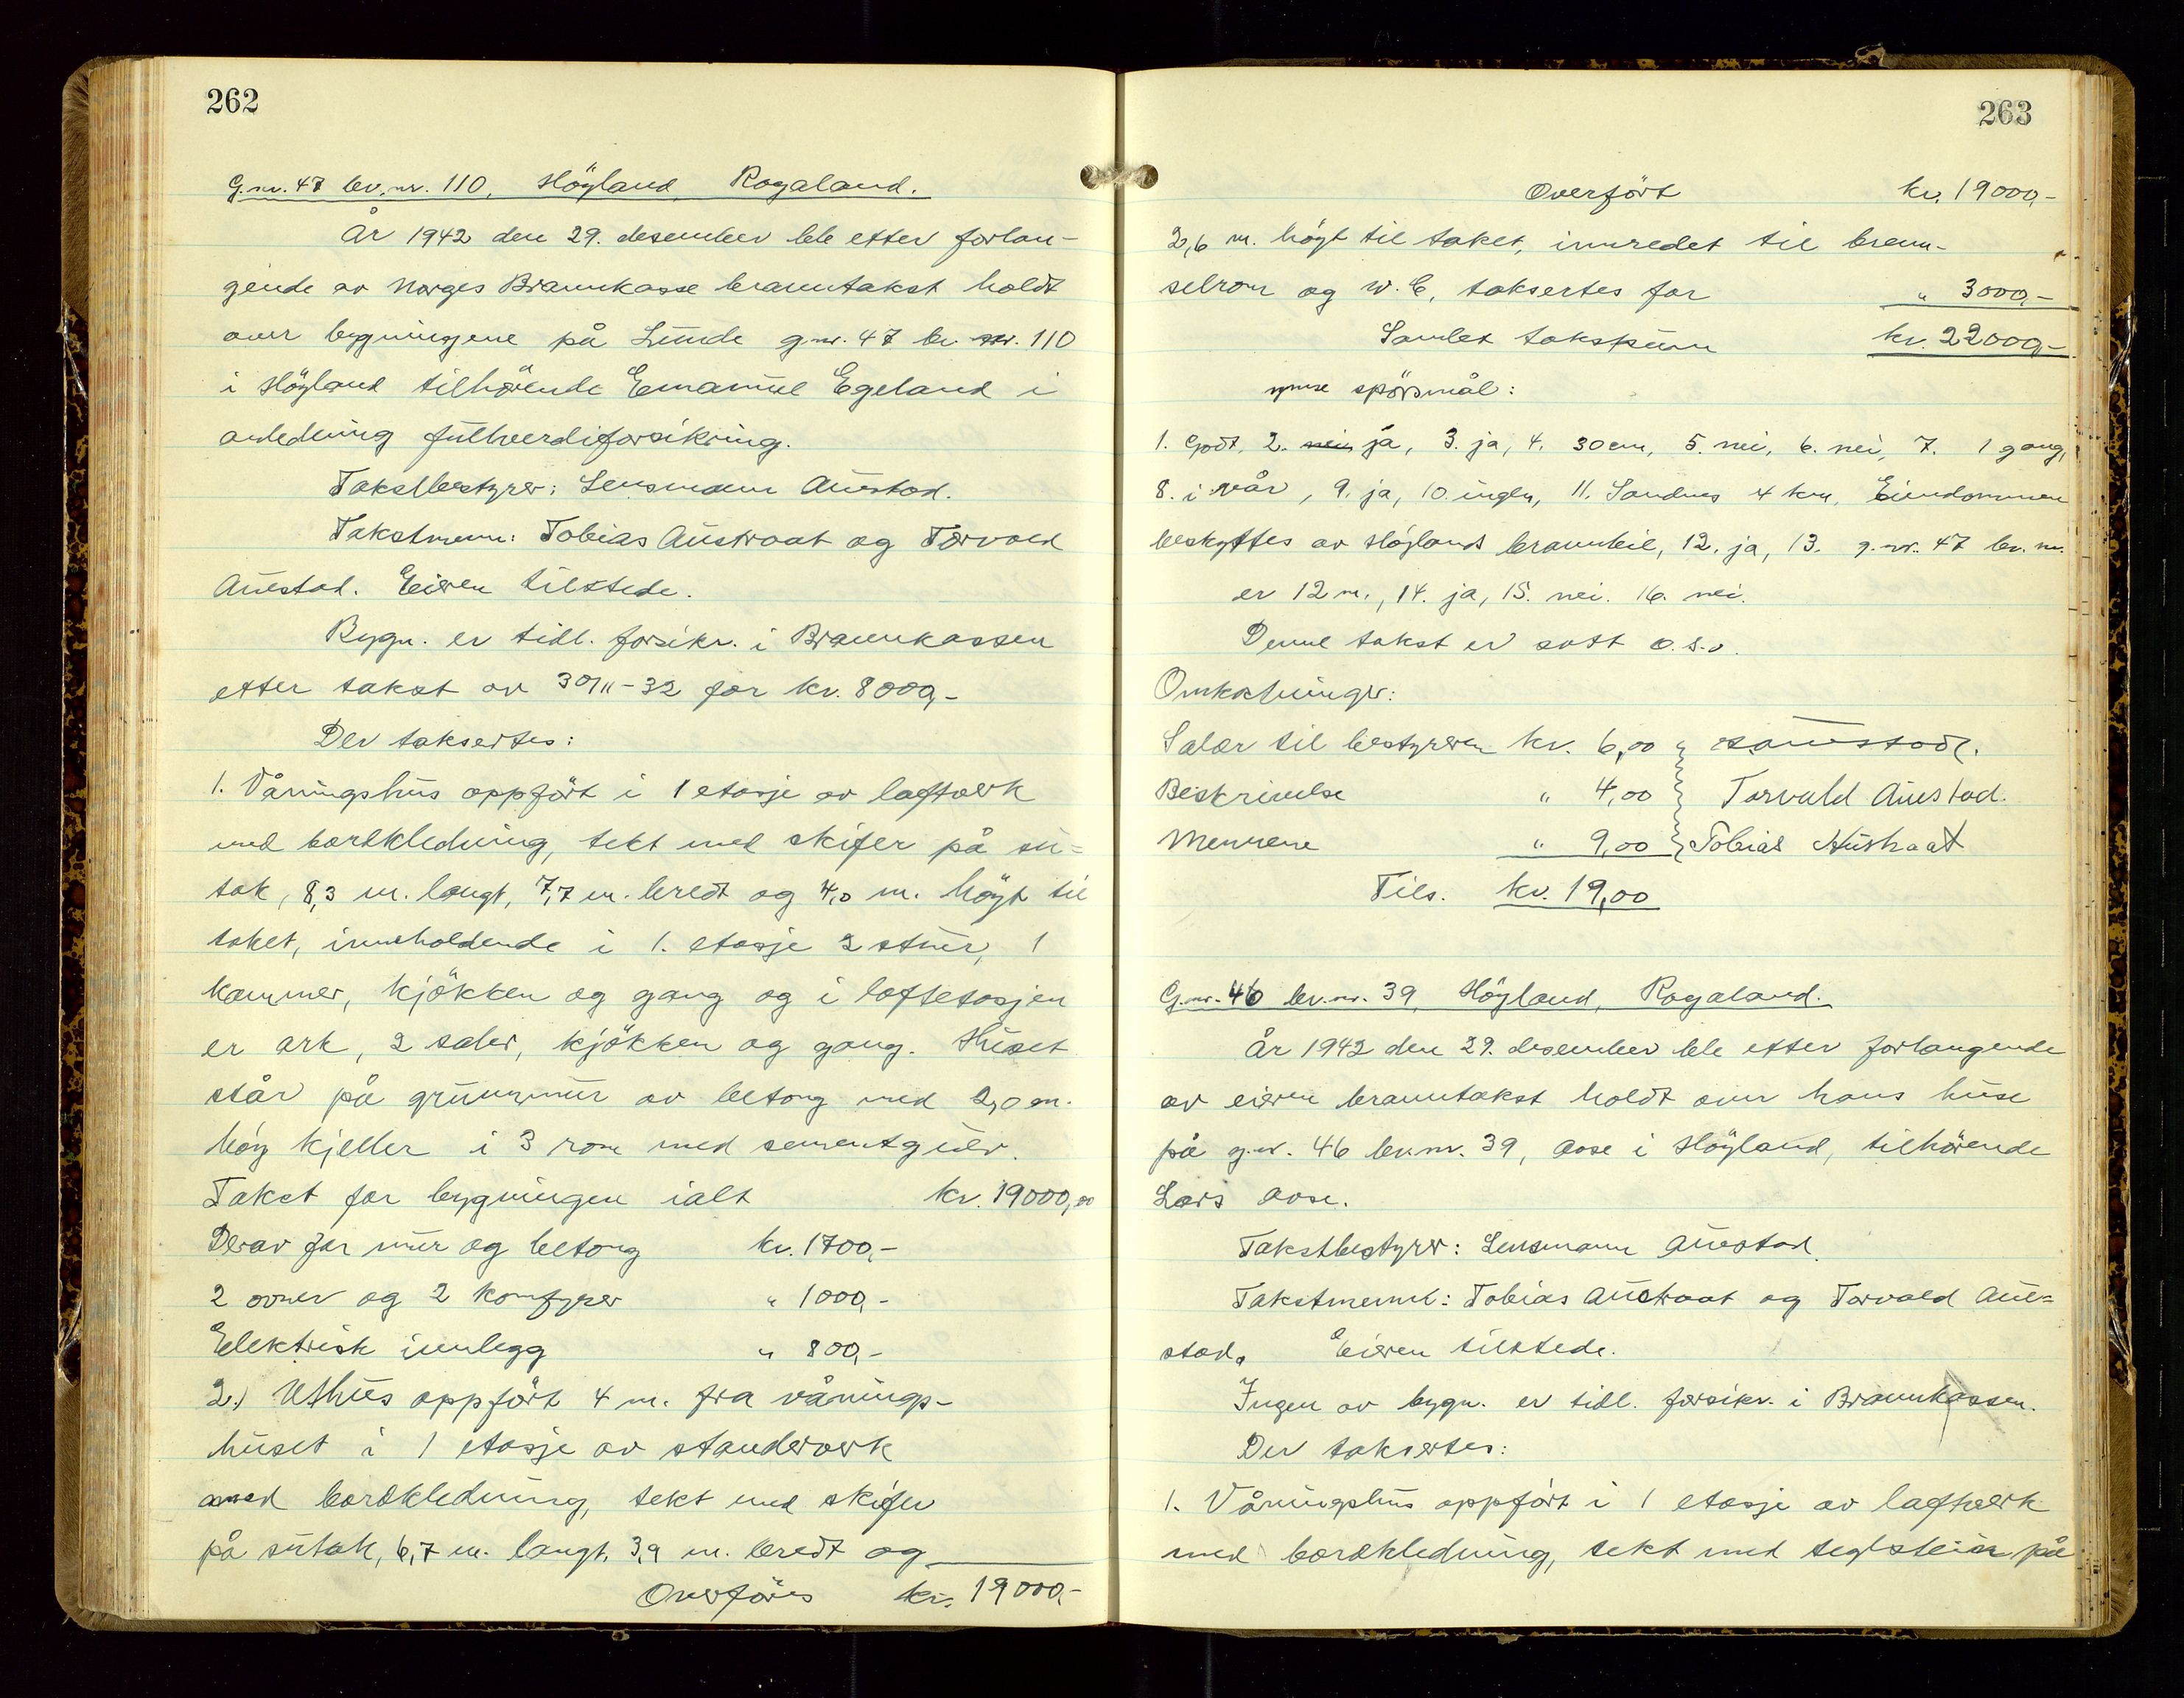 262
G.nr. 47 br.nr. 110, Höyland Rogaland.
År 1942 den 29. desember ble etter forlan-
gende av Norges Brannkasse branntakst holdt
over bygningene på Lunde g.nr. 47 br. nr. 110
i Höyland tilhörende Emanuel Egeland i
anledning fullverdiforsikring.
Takstbestyrer: Lensmann Auestad.
Takstmenn: Tobias Austraat og Torvald
Auestad. Eieren tilstede.
Bygn. er tidl. forsikr. i Brannkassen
etter takst av 30/11-32 for kr. 8000,-
Der taksertes:
1. Våningshus oppfört i 1 etasje av lafteverk
med bordkledning, tekt med skifer på su=
tak, 8,3 m. langt, 7,7 m. bredt og 4,0 m. höyt til
taket, inneholdende i 1. etasje 2 stuer, 1
kammer, kjökken og gang og i loftetasjen
er ark, 2 saler, kjökken og gang. Huset
står på grunnmur av betong med 2,0 m.
höy kjeller i 3 rom med sementgulv.
Takst for bygningen ialt kr. 19000,00
Derav for mur og betong kr. 1700,-
2 ovner og 2 komfyrer " 1000,-
Elektrisk innlegg " 800,-
2.) Uthus oppfört 4 m. fra vånings-
huset i 1 etasje av standerverk
med bordkledning, tekt med skifer
på sutak, 6,7 m. langt, 3,9 m. bredt og
Overföres kr. 19000,-
263
Overfört kr. 19000,-
2,6 m. höyt til taket, innredet til brenn-
selrom og W.C, taksertes for " 3000,-
Samlet takstsum kr. 22000,-
ymse spörsmål:
1. Godt, 2. nei ja, 3. ja, 4. 30 cm, 5. nei, 6. nei, 7. 1 gang,
8. i vår, 9. ja, 10. ingen, 11. Sandnes 4 km, Eiendommen
beskyttes av Höylands brannbil, 12. ja, 13. g.nr. 47 br. nr.
er 12 m., 14. ja, 15. nei. 16. nei.
Denne takst er satt o.s.v.
Omkostninger:
Salær til bestyreren kr. 6,00 Auestad.
Beskrivelse " 4,00 Torvald Auestad.
Mennene " 9,00 Tobias Austraat
Tils. kr. 19,00
G.nr. 46 br.nr. 39, Höyland, Rogaland.
År 1942 den 29. desember ble etter forlangende
av eieren branntakst holdt over hans huse
på g.nr. 46 br.nr. 39, Aase i Höyland, tilhörende
Lars Aase.
Takstbestyrer: Lensmann Auestad.
Takstmenn: Tobias Austraat og Torvald Aue=
stad. Eieren tilstede.
Ingen av bygn. er tidl. forsikr. i Brannkassen.
Der taksertes:
1. Våningshus oppfört i 1 etasje av lafteverk
med bordkledning, tekt med teglstein på